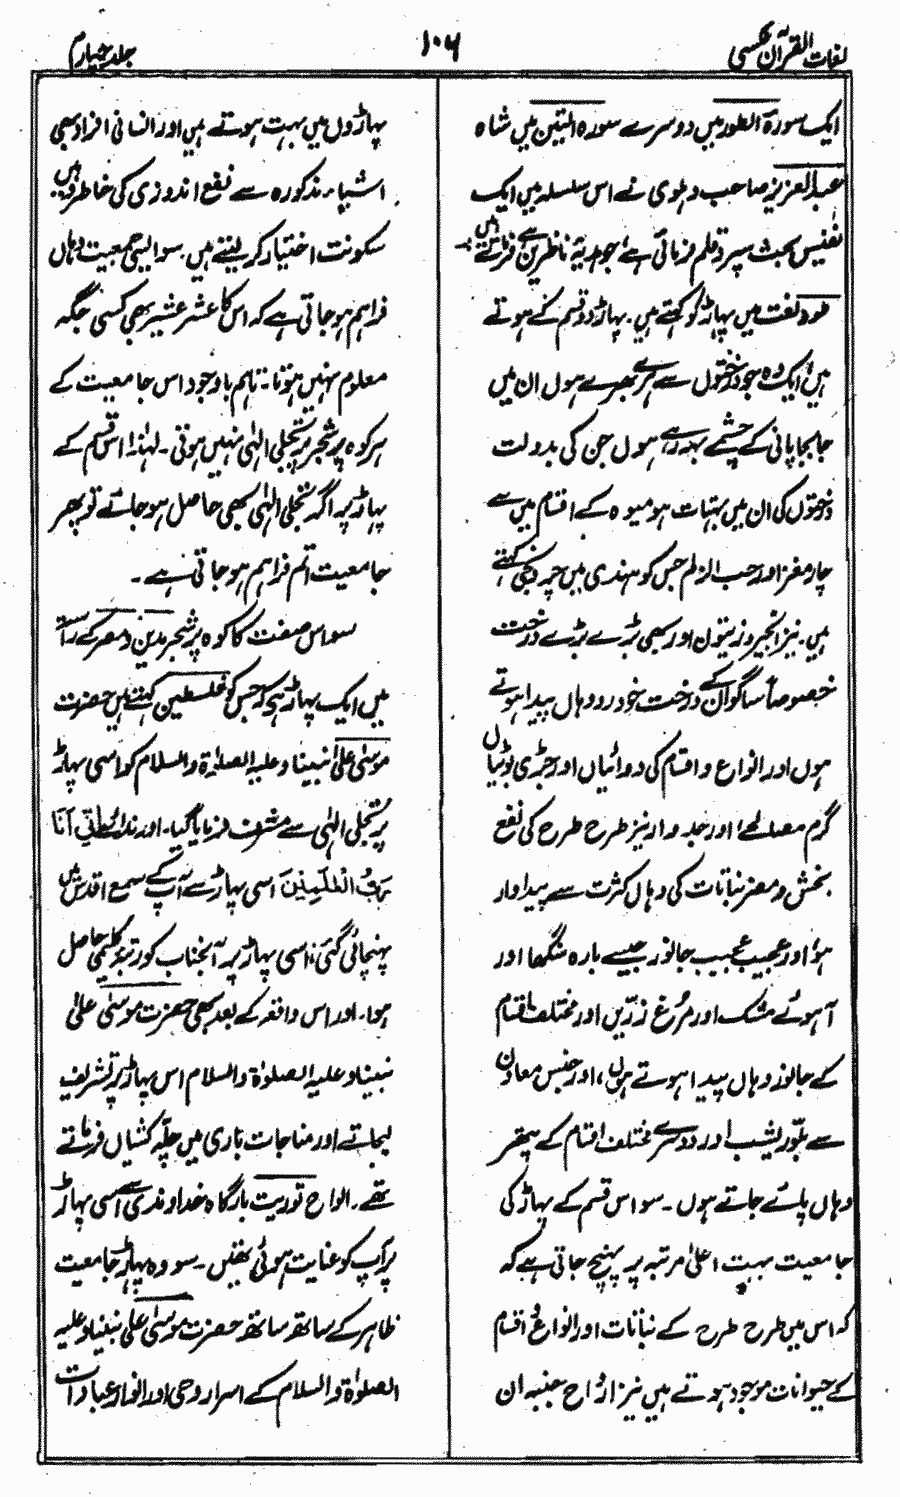 لغات القرآن عکسی
۱۰۶
جلد چہارم
ایک سورۃ الطور میں دوسرے سورہ التین میں شاہ
عبدالعزیز صاحب دہلوی نے اس سلسلہ میں ایک
نفیس بحث سپرد قلم فرمائی ہے جو ہدیۂ ناظرین ہے فرماتے ہیں:۔
طور لغت میں پہاڑ کو کہتے ہیں۔ پہاڑ دو قسم کے ہوتے
ہیں، ایک وہ جو درختوں سے ہرے بھرے ہوں ان میں
جابجا پانی کے چشمے بہہ رہے ہوں جن کی بدولت
درختوں کی ان میں بہتات ہو میوہ کے اقسام میں سے
چار مغز اور حب الزلم جس کو ہندی میں چرونجی کہتے
ہیں۔ نیز انجیر و زیتون اور کھی بڑے بڑے درخت
خصوصاً ساگوان کے درخت خودرو وہاں پیدا ہوتے
ہوں اور انواع و اقسام کی دوائیاں اور جڑی بوٹیاں
گرم مصالحے اور جدوار نیز طرح طرح کی نفع
بخش و مضر نباتات کی وہاں کثرت سے پیداوار
ہو، اور عجیب عجیب جانور جیسے بارہ سنگھا اور
آہوئے مشک اور مرغ زرّیں اور مختلف اقسام
کے جانور وہاں پیدا ہوتے ہوں، اور جنس معادن
سے بلّور یشب اور دوسرے مختلف اقسام کے پتھر
وہاں پائے جاتے ہوں۔ سو اس قسم کے پہاڑ کی
جامعیت بہت اعلیٰ مرتبہ پر پہنچ جاتی ہے کہ
کہ اس میں طرح طرح کے نباتات اور انواع و اقسام
کے حیوانات موجود ہوتے ہیں نیز ارواح جنیہ ان
پہاڑوں میں بہت ہوتے ہیں اور انسانی افراد بھی
اشیاء مذکورہ سے نفع اندوزی کی خاطر وہیں
سکونت اختیار کر لیتے ہیں۔ سو ایسی جمعیت وہاں
فراہم ہو جاتی ہے کہ اس کا عشر عشیر بھی کسی جگہ
معلوم نہیں ہوتا۔ تاہم باوجود اس جامعیت کے
ہر کوہ پر شجر پر تجلی الٰہی نہیں ہوتی۔ لہٰذا اس قسم کے
پہاڑ پر اگر تجلی الٰہی بھی حاصل ہو جائے تو پھر
جامعیت اتم فراہم ہو جاتی ہے۔
سو اس صفت کا کوہ پر شجر مدین و مصر کے راستہ
میں ایک پہاڑ ہی کہ جس کو فلسطین کہتے ہیں حضرت
موسیٰ علیٰ نبینا و علیہ الصلوٰۃ والسلام کو اسی پہاڑ
پر تجلی الٰہی سے مشرف فرمایا گیا۔ اور ندائے اِنِّی اَنَا
رَبُّ الْعٰلَمِیْنَ اسی پہاڑ سے آپ کے سمع اقدس میں
پہنچائی گئی، اسی پہاڑ پر آنجناب کو رتبۂ کلیمی حاصل
ہوا۔ اور اس واقعہ کے بعد بھی حضرت موسیٰ علیٰ
نبینا و علیہ الصلوٰۃ والسلام اس پہاڑ پر تشریف
لیجاتے اور مناجات باری میں چلہ کشیاں فرماتے
تھے۔ الواح توریت بارگاہ خداوندی سے اسی پہاڑ
پر آپ کو عنایت ہوئی تھیں۔ سو وہ پہاڑ جامعیت
ظاہر کے ساتھ ساتھ حضرت موسیٰ علیٰ نبینا و علیہ
الصلوٰۃ والسلام کے اسرار وحی اور انوار عبادات